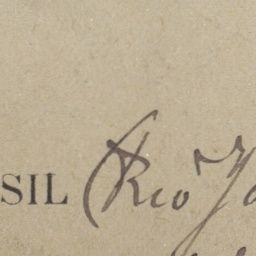 SIL (Rio Ja